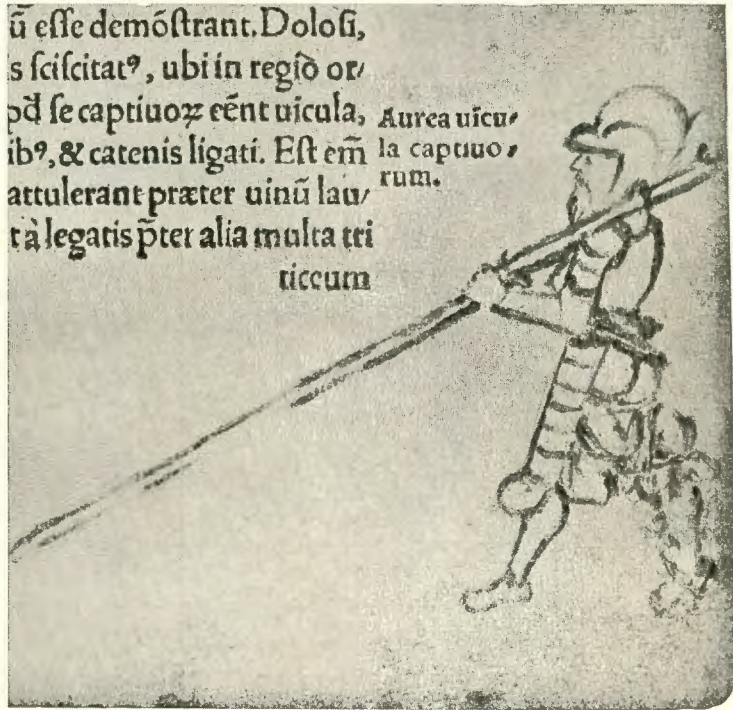 ũ eſſe demõſtrant. Doloſi,
s ſciſcitatꝰ, ubi in regiõ or/
pđ ſe captiuoꝝ eẽnt uicula,
ibꝰ, & catenis ligati. Eſt em̃
attulerant præter uinũ lau/
t à legatis p̃ter alia multa tri
ticcum
Aurea uicu/
la captiuo,
rum.